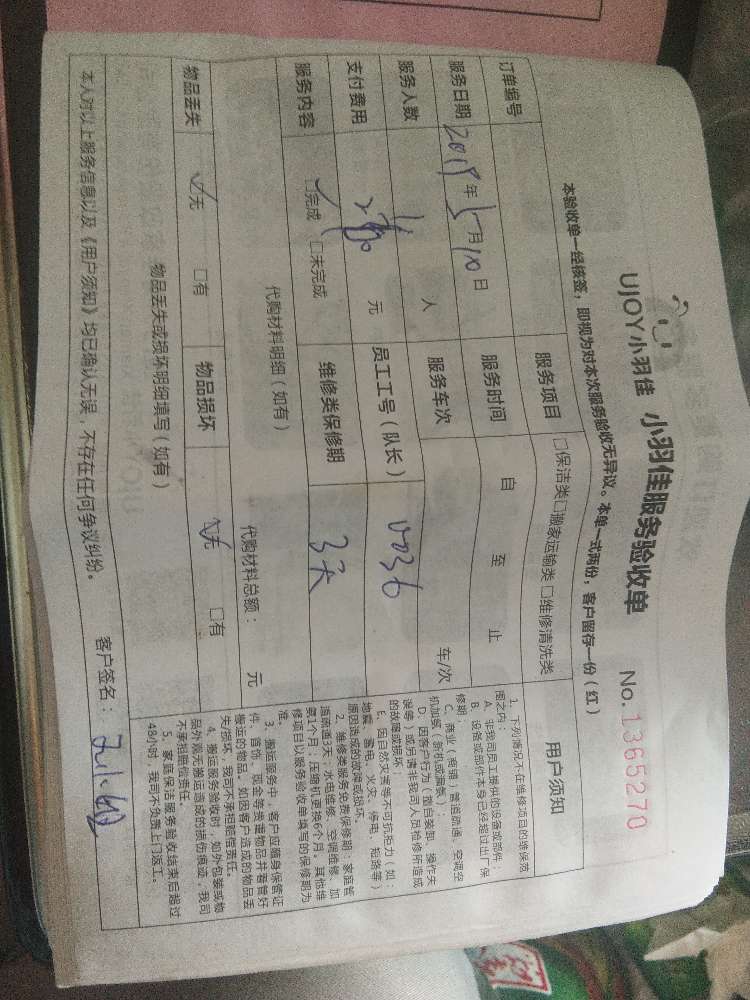 UJOY小羽佳 小羽佳服务验收单 No. 1365270
本验收单一经核签，即视为对本次服务验收无异议。本单一式两份，客户留存一份（红）
订单编号 服务项目 □保洁类□搬家运输类□维修清洗类
服务日期 2019年5月10日 服务时间 自 至 止
服务人数 人 服务车次 车/次
支付费用 元 员工工号（队长） 0036
服务内容 ☑完成 □未完成 维修类保修期 3天
代购材料明细（如有） 代购材料总额： 元
物品丢失 ☑无 □有 物品损坏 ☑无 □有
物品丢失或损坏明细填写（如有）
本人对以上服务信息以及《用户须知》均已确认无误，不存在任何争议纠纷。 客户签名：
用户须知
1、下列情况不在维修项目的维保范
围之内：
A、非我司员工提供的设备或部件；
B、设备或部件本身已经超过出厂保
修期；
C、商业（店铺）管道疏通、空调空
机加氟（新机或漏氟）；
D、因客户行为（擅自装卸、操作失
误等）或申请非我司人员检修所造成
的故障或损坏；
E、因自然灾害等不可抗拒力（如：
地震、雷电、火灾、停电、短路等）
原因造成的故障或损坏。
2、维修类服务免费保修期：家庭管
道疏通3天，水电维修、空调维修、加
氨1个月，压缩机更换6个月。其他维
修项目以服务验收单填写的保修期为
准。
3、搬运至家中，客户应随身保管证
件、首饰、现金等贵重物品并看管好
搬运的物品。如因客户造成的物品丢
失/损坏，我司不承担赔偿责任。
4、搬运服务验收时，如外包装或物
品外观无搬运造成的损伤痕迹，我司
不承担赔偿责任。
5、家庭保洁服务验收结束后超过
48小时，我司不负责上门返工。